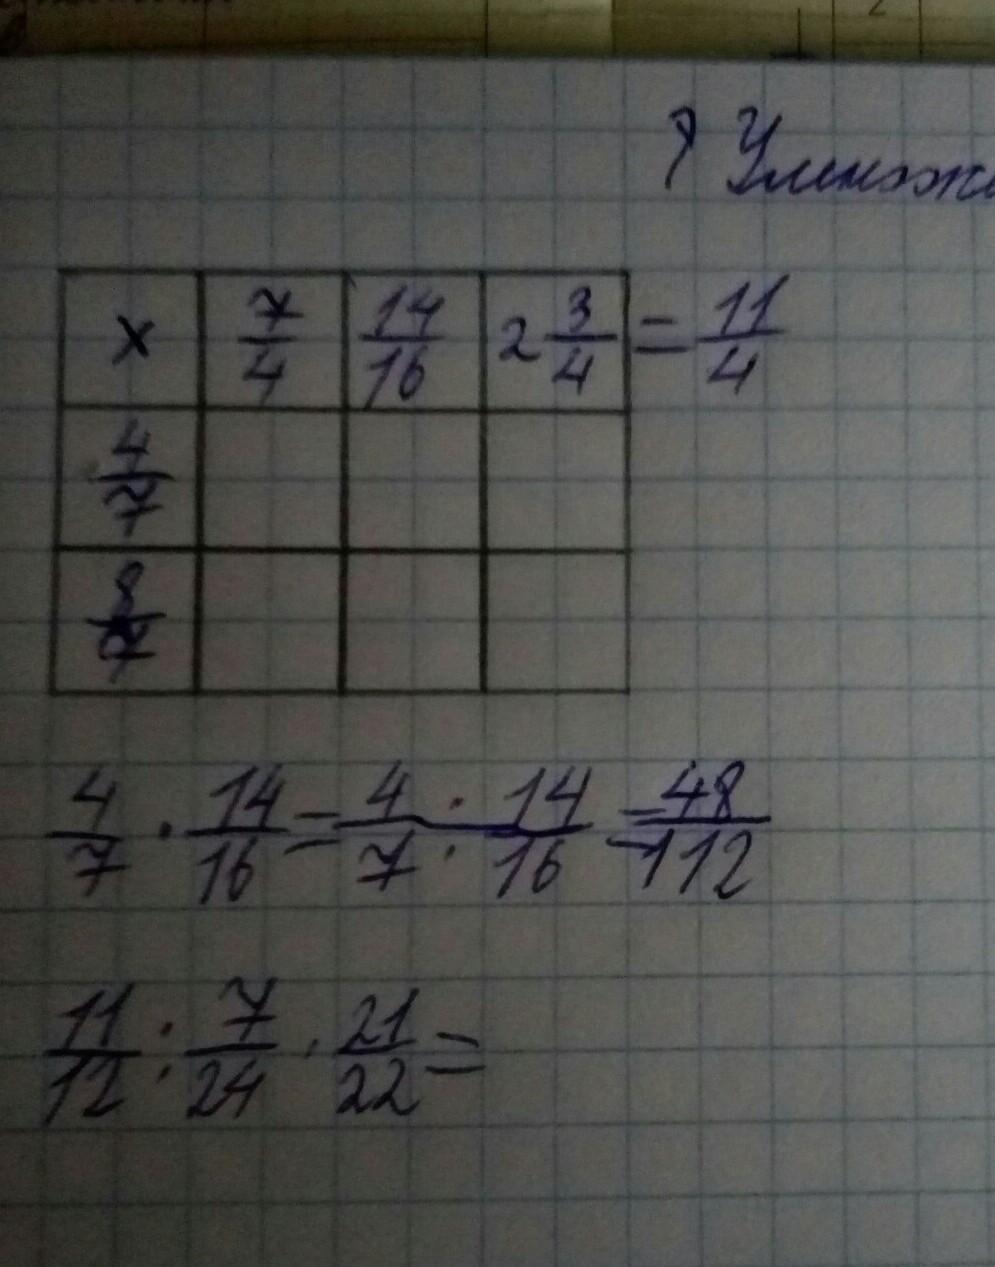 Умнож
× 7/4 14/16 2 3/4 = 11/4
4/7
8/7
4/7 · 14/16 = 4/7 : 14/16 = 48/112
11/12 : 7/24 · 21/22 =